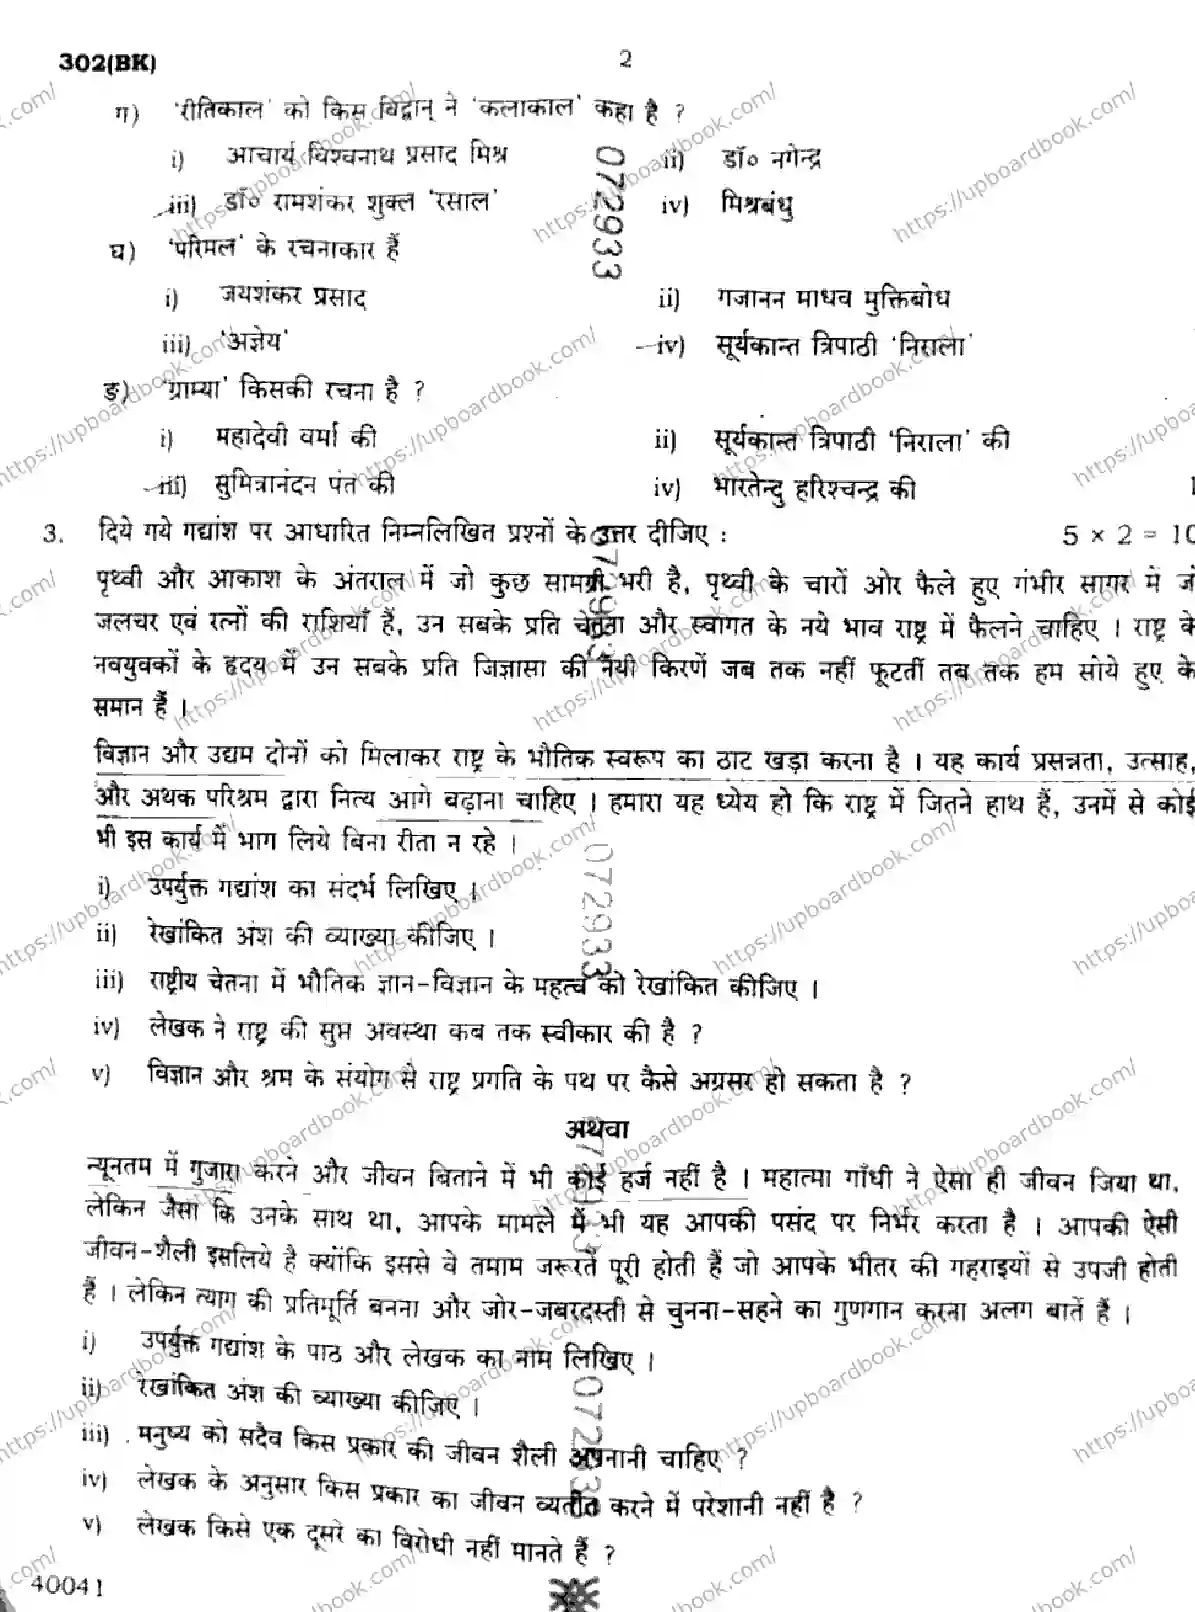 302(BK)
2
ग) 'रीतिकाल' को किस विद्वान् ने 'कलाकाल' कहा है ?
i) आचार्य विश्वनाथ प्रसाद मिश्र ii) डॉ० नगेन्द्र
iii) डॉ० रामशंकर शुक्ल 'रसाल' iv) मिश्रबंधु
घ) 'परिमल' के रचनाकार हैं
i) जयशंकर प्रसाद ii) गजानन माधव मुक्तिबोध
iii) 'अज्ञेय' iv) सूर्यकान्त त्रिपाठी 'निराला'
ङ) 'ग्राम्या' किसकी रचना है ?
i) महादेवी वर्मा की ii) सूर्यकान्त त्रिपाठी 'निराला' की
iii) सुमित्रानंदन पंत की iv) भारतेन्दु हरिश्चन्द्र की
3. दिये गये गद्यांश पर आधारित निम्नलिखित प्रश्नों के उत्तर दीजिए : 5 × 2 = 10
पृथ्वी और आकाश के अंतराल में जो कुछ सामग्री भरी है, पृथ्वी के चारों ओर फैले हुए गंभीर सागर में जो
जलचर एवं रत्नों की राशियाँ हैं, उन सबके प्रति चेतना और स्वागत के नये भाव राष्ट्र में फैलने चाहिए । राष्ट्र के
नवयुवकों के हृदय में उन सबके प्रति जिज्ञासा की नयी किरणें जब तक नहीं फूटतीं तब तक हम सोये हुए के
समान हैं ।
विज्ञान और उद्यम दोनों को मिलाकर राष्ट्र के भौतिक स्वरूप का ठाट खड़ा करना है । यह कार्य प्रसन्नता, उत्साह,
और अथक परिश्रम द्वारा नित्य आगे बढ़ाना चाहिए । हमारा यह ध्येय हो कि राष्ट्र में जितने हाथ हैं, उनमें से कोई
भी इस कार्य में भाग लिये बिना रीता न रहे ।
i) उपर्युक्त गद्यांश का संदर्भ लिखिए ।
ii) रेखांकित अंश की व्याख्या कीजिए ।
iii) राष्ट्रीय चेतना में भौतिक ज्ञान-विज्ञान के महत्व को रेखांकित कीजिए ।
iv) लेखक ने राष्ट्र की सुप्त अवस्था कब तक स्वीकार की है ?
v) विज्ञान और श्रम के संयोग से राष्ट्र प्रगति के पथ पर कैसे अग्रसर हो सकता है ?
अथवा
न्यूनतम में गुजारा करने और जीवन बिताने में भी कोई हर्ज नहीं है । महात्मा गाँधी ने ऐसा ही जीवन जिया था,
लेकिन जैसा कि उनके साथ था, आपके मामले में भी यह आपकी पसंद पर निर्भर करता है । आपकी ऐसी
जीवन-शैली इसलिये है क्योंकि इससे वे तमाम जरूरतें पूरी होती हैं जो आपके भीतर की गहराइयों से उपजी होती
हैं । लेकिन त्याग की प्रतिमूर्ति बनना और जोर-जबरदस्ती से चुनना-सहने का गुणगान करना अलग बातें हैं ।
i) उपर्युक्त गद्यांश के पाठ और लेखक का नाम लिखिए ।
ii) रेखांकित अंश की व्याख्या कीजिए ।
iii) मनुष्य को सदैव किस प्रकार की जीवन शैली अपनानी चाहिए ?
iv) लेखक के अनुसार किस प्रकार का जीवन व्यतीत करने में परेशानी नहीं है ?
v) लेखक किसे एक दूसरे का विरोधी नहीं मानते हैं ?
40041
072933
072933
072933
https://upboardbook.com/